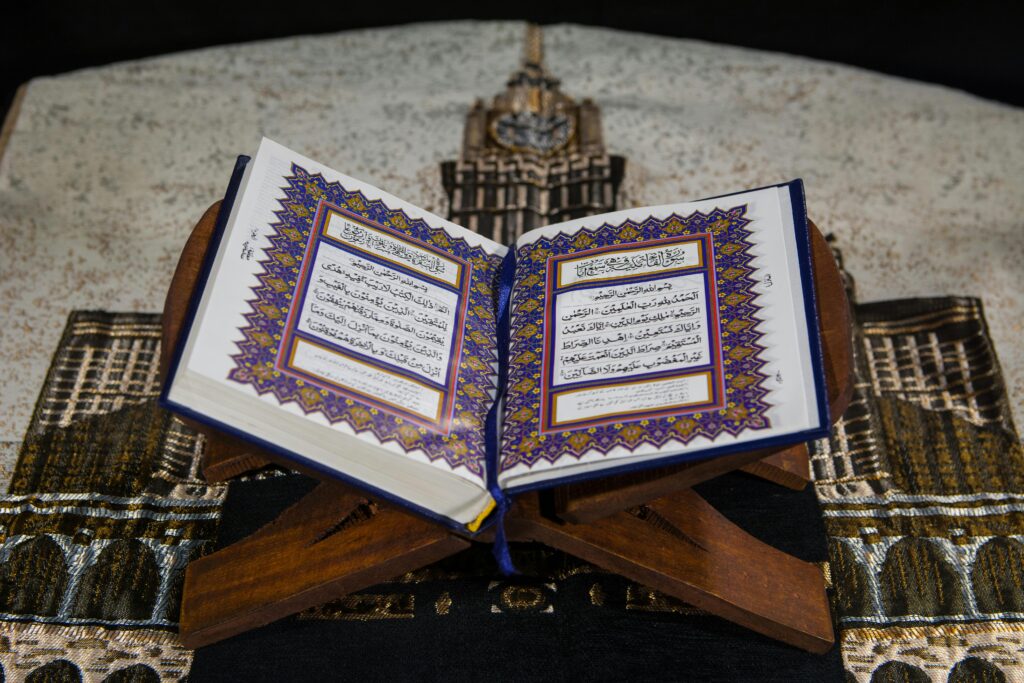 سُورَةُ الْفَاتِحَةِ مَكِّيَّةٌ وَهِيَ سَبْعُ آيَاتٍ
بِسْمِ اللهِ الرَّحْمٰنِ الرَّحِيْمِ
اَلْحَمْدُ لِلّٰهِ رَبِّ الْعٰلَمِيْنَ الرَّحْمٰنِ
الرَّحِيْمِ مٰلِكِ يَوْمِ الدِّيْنِ اِيَّاكَ نَعْبُدُ
وَاِيَّاكَ نَسْتَعِيْنُ اِهْدِنَا الصِّرَاطَ
الْمُسْتَقِيْمَ صِرَاطَ الَّذِيْنَ اَنْعَمْتَ عَلَيْهِمْ
غَيْرِ الْمَغْضُوْبِ عَلَيْهِمْ وَلَا الضَّآلِّيْنَ
سُورَةُ الْبَقَرَةِ
بِسْمِ اللهِ الرَّحْمٰنِ الرَّحِيْمِ
الٓمّٓ ذٰلِكَ الْكِتٰبُ لَا رَيْبَ فِيْهِ هُدًى
لِّلْمُتَّقِيْنَ الَّذِيْنَ يُؤْمِنُوْنَ بِالْغَيْبِ وَ
يُقِيْمُوْنَ الصَّلٰوةَ وَمِمَّا رَزَقْنٰهُمْ يُنْفِقُوْنَ
وَالَّذِيْنَ يُؤْمِنُوْنَ بِمَآ اُنْزِلَ اِلَيْكَ وَمَآ
اُنْزِلَ مِنْ قَبْلِكَ وَبِالْاٰخِرَةِ هُمْ يُوْقِنُوْنَ